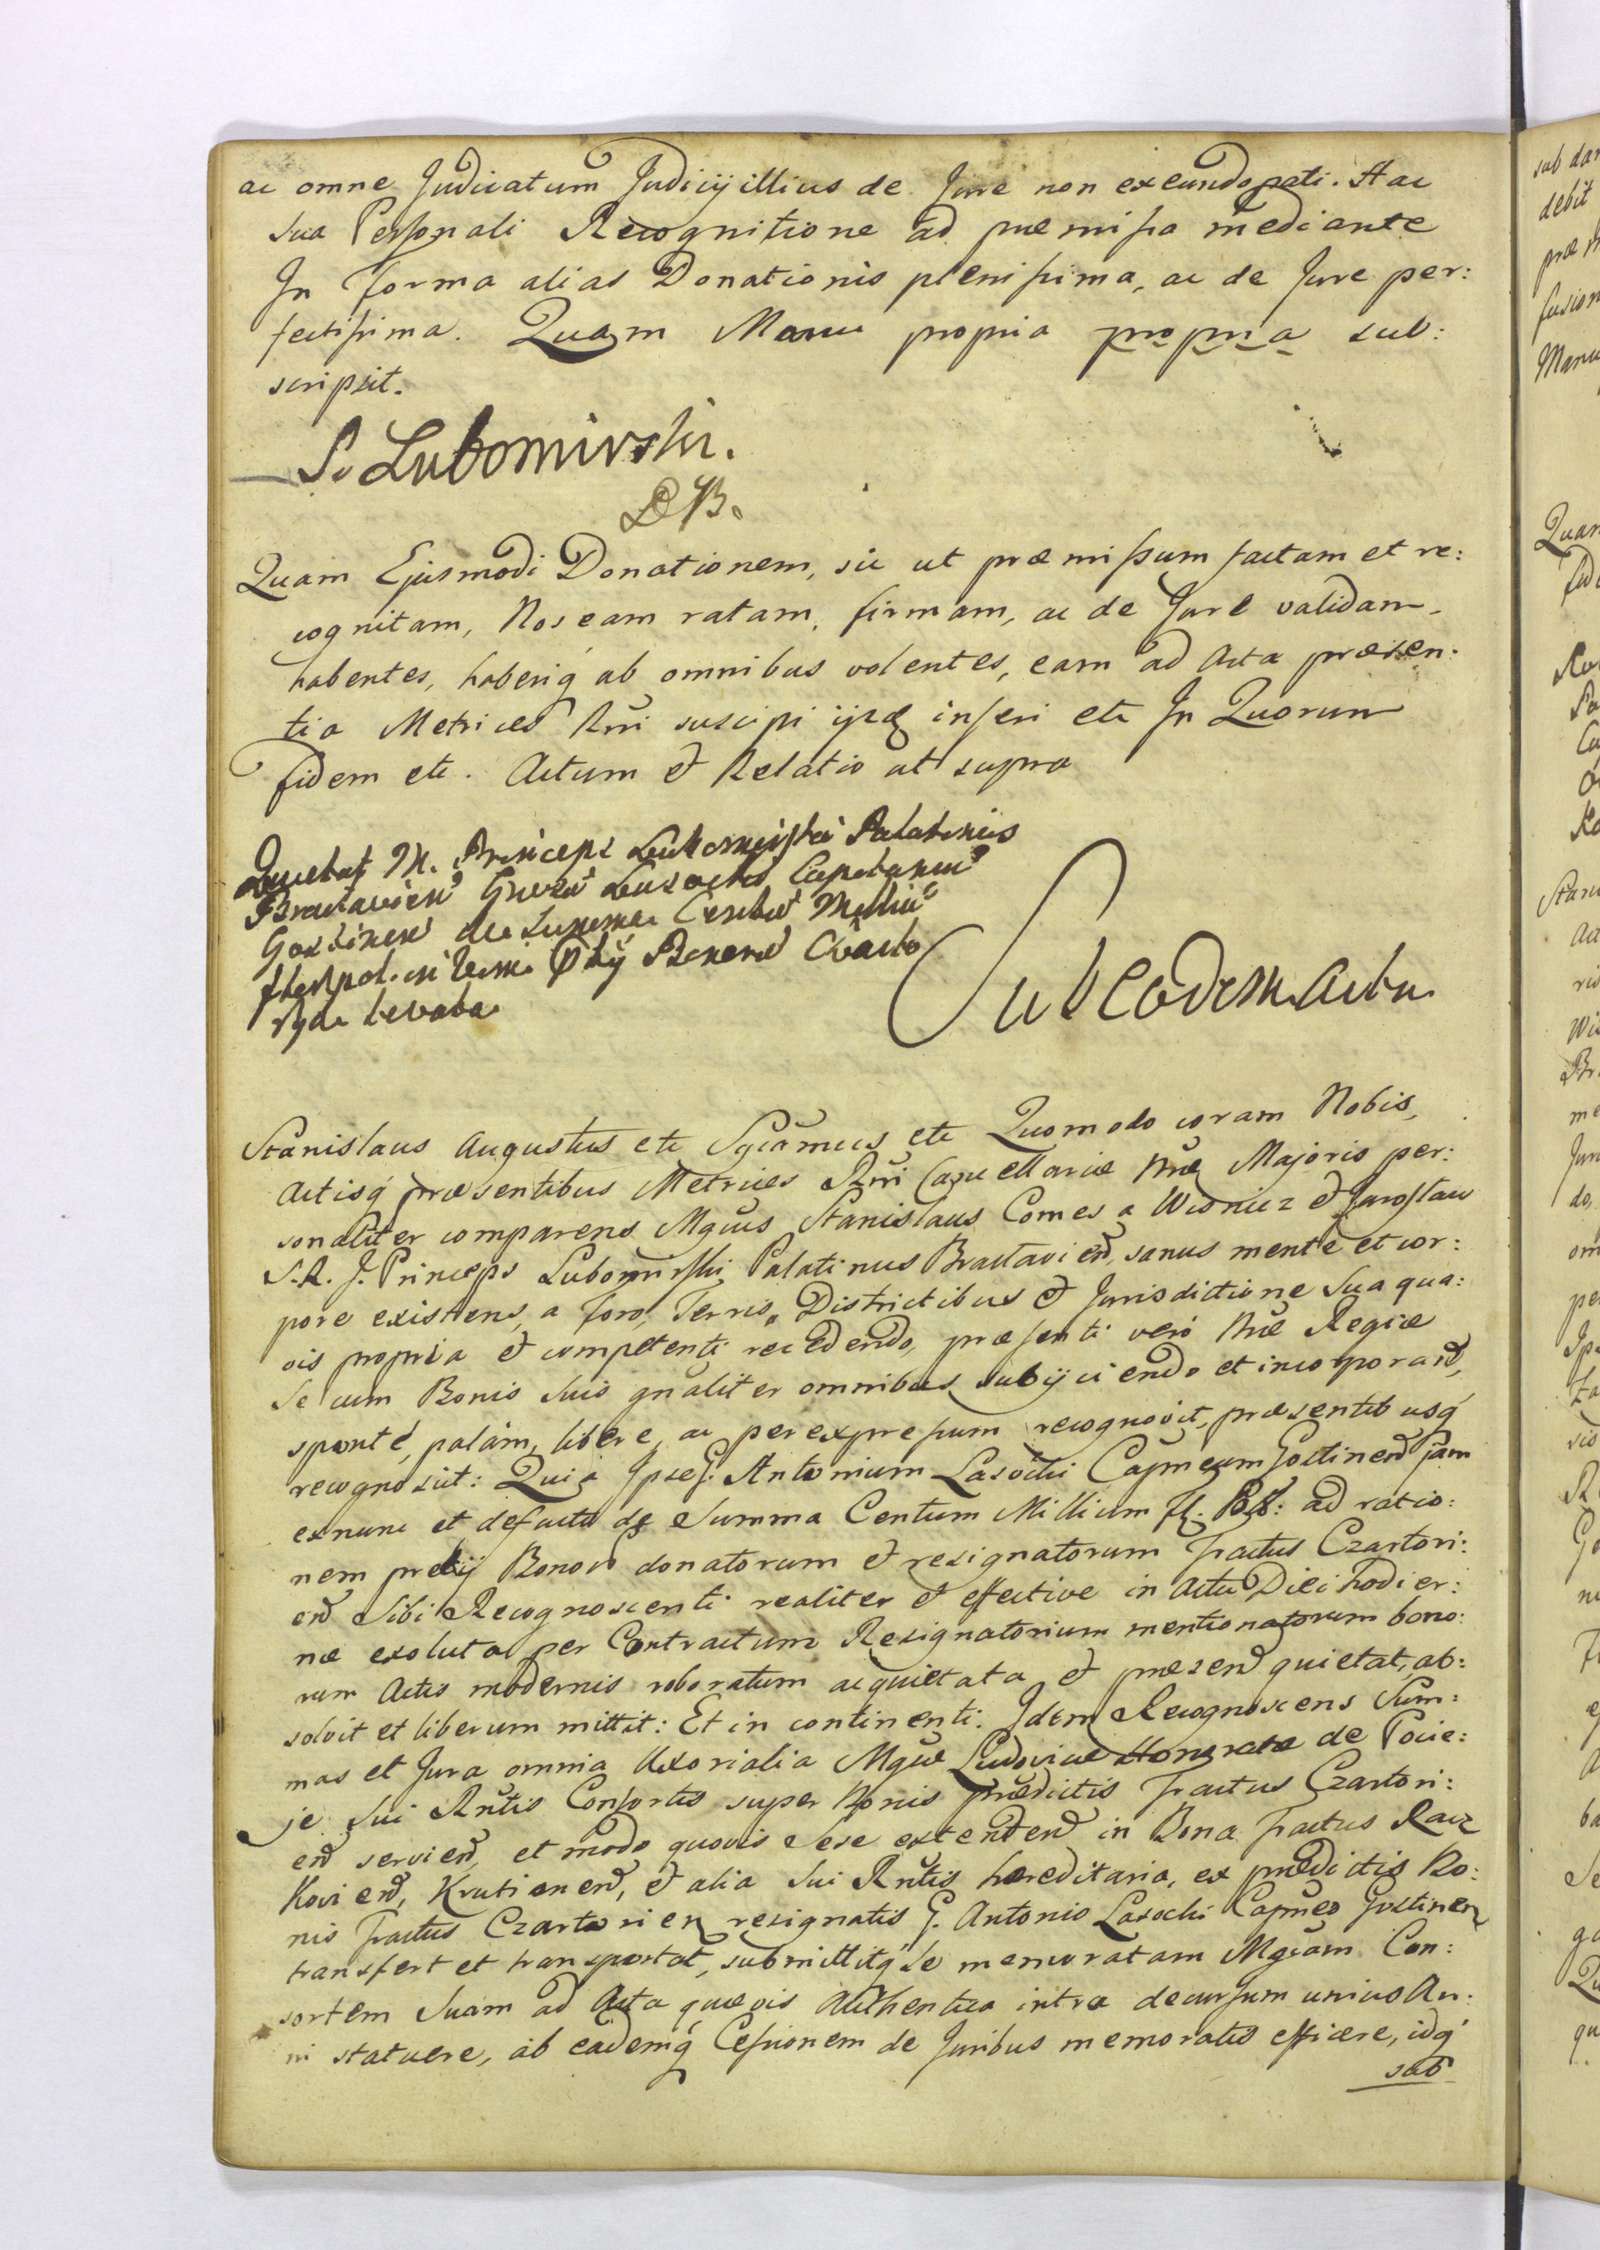 ac omne Judicatum Judicij illius de Jure non exeundo pati. Hac
sua Personali Recognitione ad præmissa mediante
In forma alias Donationis plenissima, ac de Jure per:
fectissima. Quam Manu propria propria sub:
scripsit.
S. Lubomirski.
Quam Ejusmodi Donationem, sic ut præmissum factam et re:
cognitam, Nos eam ratam, firmam, ac de Jure validam
habentes, haberiq́ ab omnibus volentes, eam ad Acta præsen:
tia Metrices Rñi suscipi ijsq inseri etc In Quorum
fidem etc. Actum et Relatio ut supra
Quietat M. Princeps Lubomirski Palatinus
Braclavien Lasocki Capitaneum
Gostinen de Summa Centum Millium
flor pol. in vim Ptij Bonorum Czarto
ryja levata
Sub eodem Actu
Stanislaus Augustus etc Sgcamus etc Quomodo coram Nobis,
Actisq́ præsentibus Metrices Rñi Cancellariæ Nræ Majoris per:
sonaliter comparens Mgcus Stanislaus Comes a Wisnicz et Jaroslau
S. R. J. Princeps Lubomirski Palatinus Braclavien, sanus mente et cor:
pore existens, a foro, Terris, Districtibus et Jurisdictione sua qua:
vis propria et competenti recedendo, præsenti vero Nræ Regiæ
Se cum Bonis suis gnaliter omnibus subijciendo et incorporand,
sponte, palam, libere, ac per expressum recognovit, præsentibusq́
recognoscit: Quia Ipse G. Antonium Lasocki Capneum Gostinen jam
ex nunc et de facto de Summa Centum Millium fl. Pol: ad ratio:
nem pretij Bonor donatorum et resignatorum Tractus Czartori:
en Sibi Recognoscenti realiter et effective in Actu Diei hodier:
næ exoluta per Contractum Resignatorium mentionatorum bono:
rum Actis modernis roboratum acquietata et præsen quietat, ab:
solvit et liberum mittit: Et in continenti. Idem Recognoscens Sum:
mas et Jura omnia Uxorialia Mgcæ Ludovicæ Honoratæ de Pocie:
je Sui Rñtis Consortis super Bonis prædictis Tractus Czartori:
en servien, et modo quovis Sese extenden in Bona Tractus Racz
Kovien, Krutianen, et alia Sui Rñtis hæreditaria, ex prædictis Bo:
nis Tractus Czartorien resignatis G. Antonio Lasocki Capneo Gostinen
transfert et transportat, submittitq́ se memoratam Mgcam Con:
sortem Suam ad Acta quævis Authentica intra decursum unius An:
ni statuere, ab eademq́ Cessionem de Juribus memoratis efficere, idq́
sub